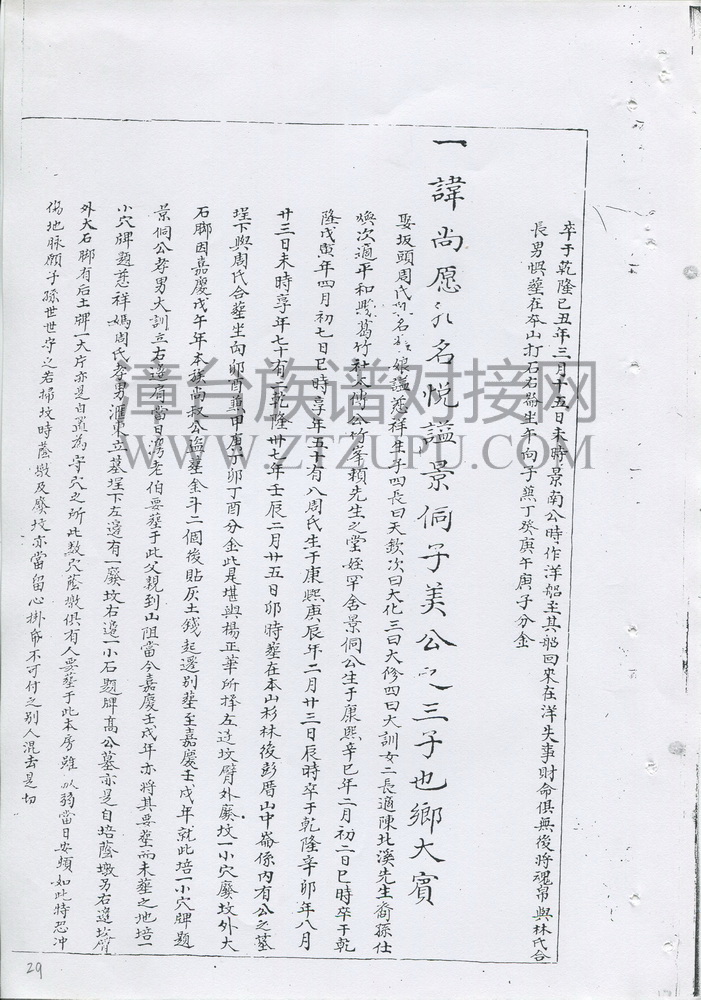 卒于乾隆己丑年三月十五日未時景南公時作洋船主其船回來在洋失事財命俱無後將魂帛與林氏合
長男惧塟在夲山打石石崙坐午向子兼丁癸庚午庚子分金
一諱尚愿 名悅謚景侗子美公之三子也鄉大賓
娶坂頭周氏 名 娘謚慈祥生子四長曰天欽次曰大化三曰大修四曰大訓女二長適陳北溪先生裔孫仕
煥次適平和 葛竹社太傅公竹 賴先生之堂姪罕舍景侗公生于康熙辛巳年二月初二日巳時卒于乾
隆戊寅年四月初七日巳時享年五十有八周氏生于康熙庚辰年二月廿三日辰時卒于乾隆辛卯年八月
廿三日未時享年七十有二乾隆卅七年壬辰二月廿五日卯時塟在本山杉林後彭厝山中崙係內有公之墓
埕下與周氏合塟坐向卯酉兼甲庚丁卯丁酉分金此是堪輿楊正華所擇左邊坟臂外廢坟一小穴廢坟外大
石脚因嘉慶戊午年本族尚叔公盜塟金斗二個後貼灰土錢起遷別塟至嘉慶壬戌年就此培一小穴牌題
景侗公孝男大訓立右邊肩當日 老伯要塟于此父親到山阻當今嘉慶壬戌年亦將其要塟而未塟之地培一
小穴牌題慈祥媽周氏孝男 東立墓埕下左邊有一廢坟右邊一小石題牌高公墓亦是自培蔭墩另右邊坟臂
外大石脚有后土牌一大片亦是自置為守穴之所此數穴蔭墩俱有人要塟于此本房雖 弱當日安頓如此特恐冲
傷地脉願子孫世世守之若掃坟時蔭墩及廢坟亦當留心掛帛不可付之別人混去是切
漳台族谱对接网
WWW.ZTZUPU.COM
29